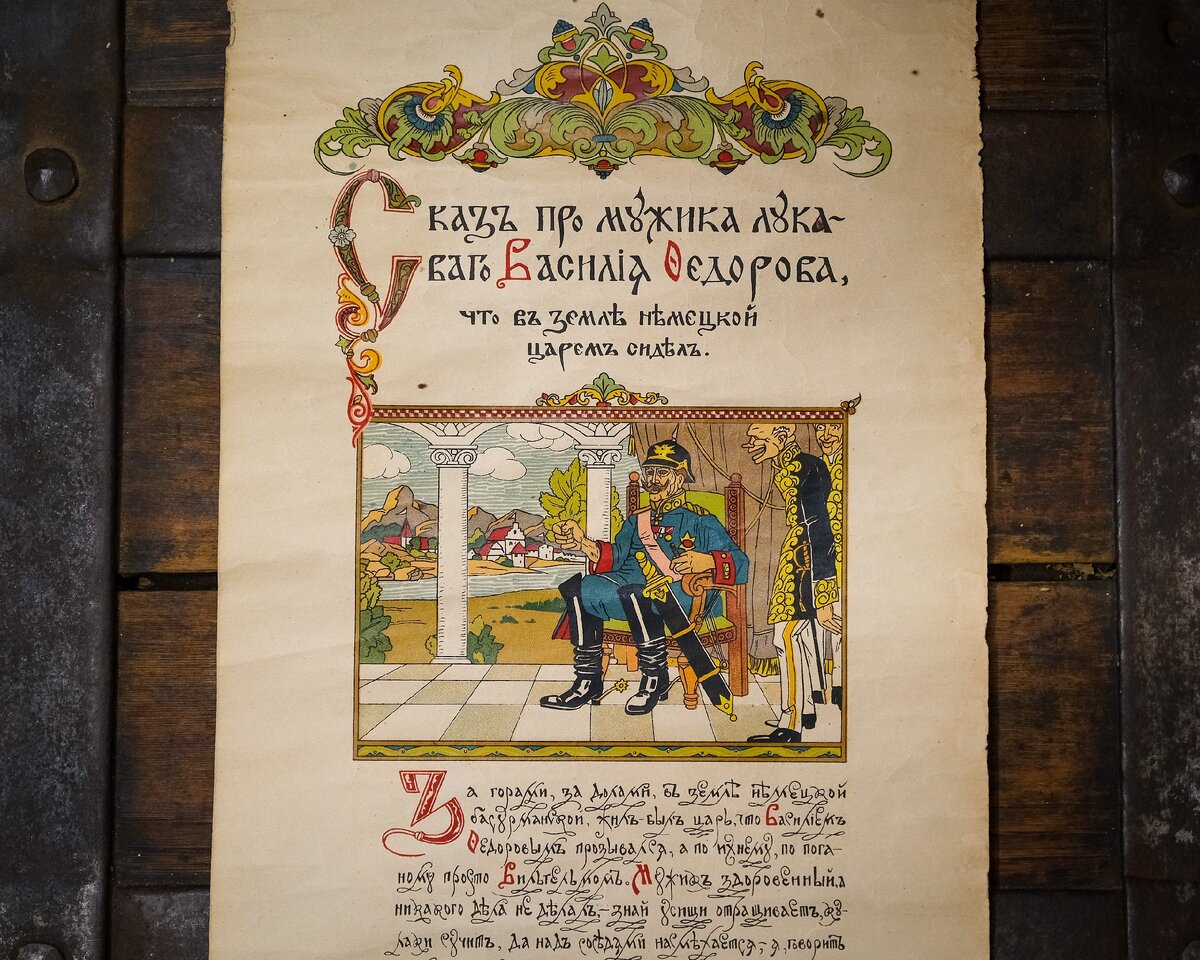 Сказъ про мужика лука-
ваго Василія Ѳедорова,
что въ землѣ нѣмецкой
царемъ сидѣлъ.
За горами, за долами, въ землѣ нѣмецкой
басурманской, жилъ-былъ царь, что Василіемъ
Ѳедоровымъ прозывался, а по ихнему, по пога-
ному просто Вильгельмомъ. Мужикъ здоровенный, а
никакого дѣла не дѣлалъ,– знай усищи отращиваетъ, ку-
лаки сучитъ, да надъ сосѣдями насмѣхается,– я, говоритъ